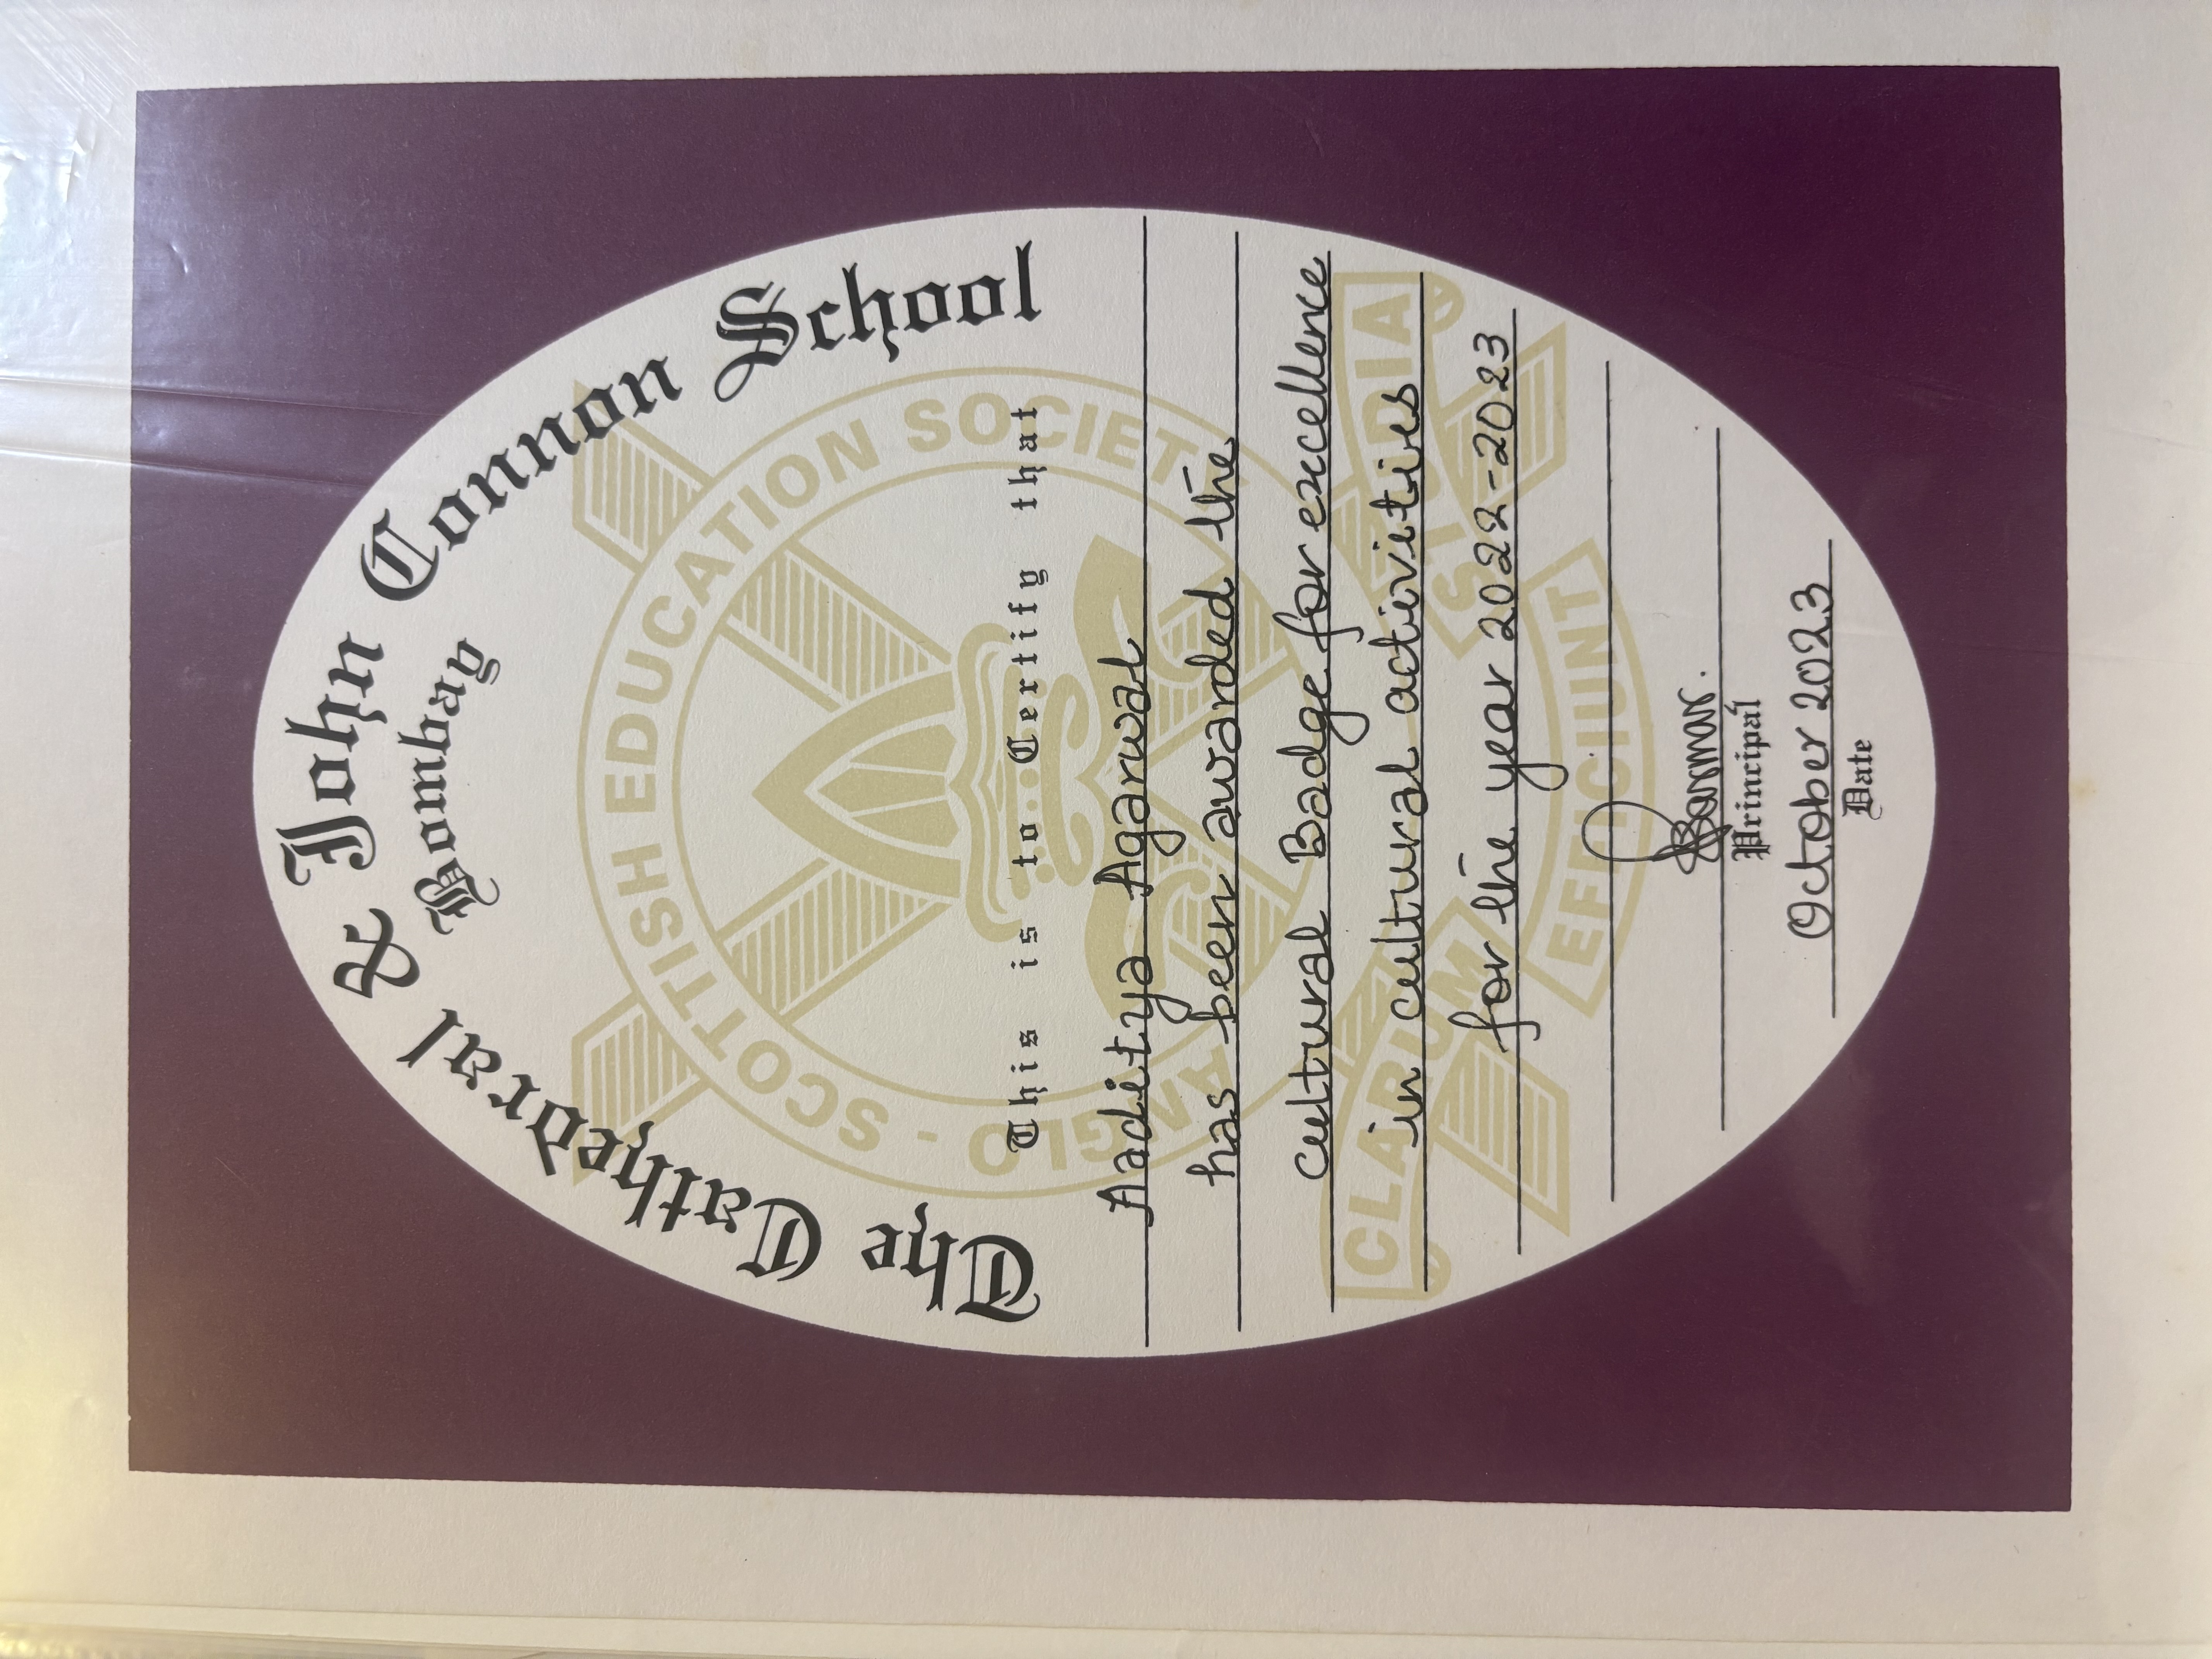 The Cathedral & John Connon School
Bombay
ANGLO - SCOTTISH EDUCATION SOCIETY
This is to Certify that
Aaditya Agarwal
has been awarded the
cultural Badge for excellence
in cultural activities
for the year 2022-2023
CLARUM EFFICIUNT STUDIA
Principal
October 2023
Date